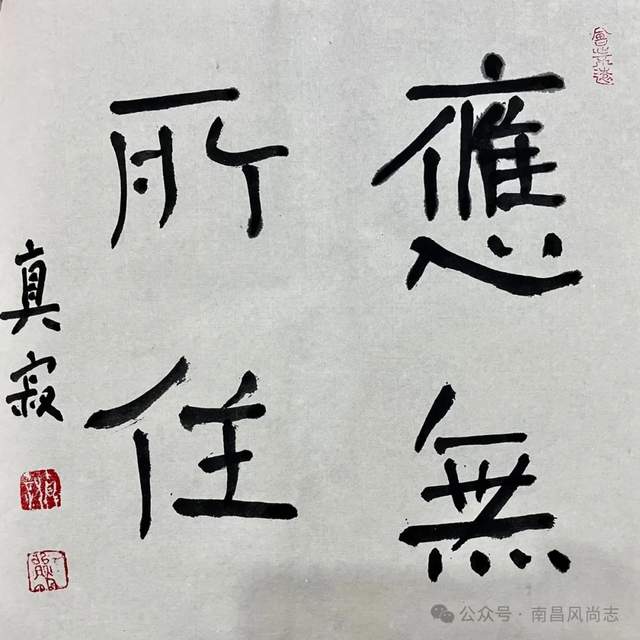 應無
所住
真寂
公众号·南昌风尚志